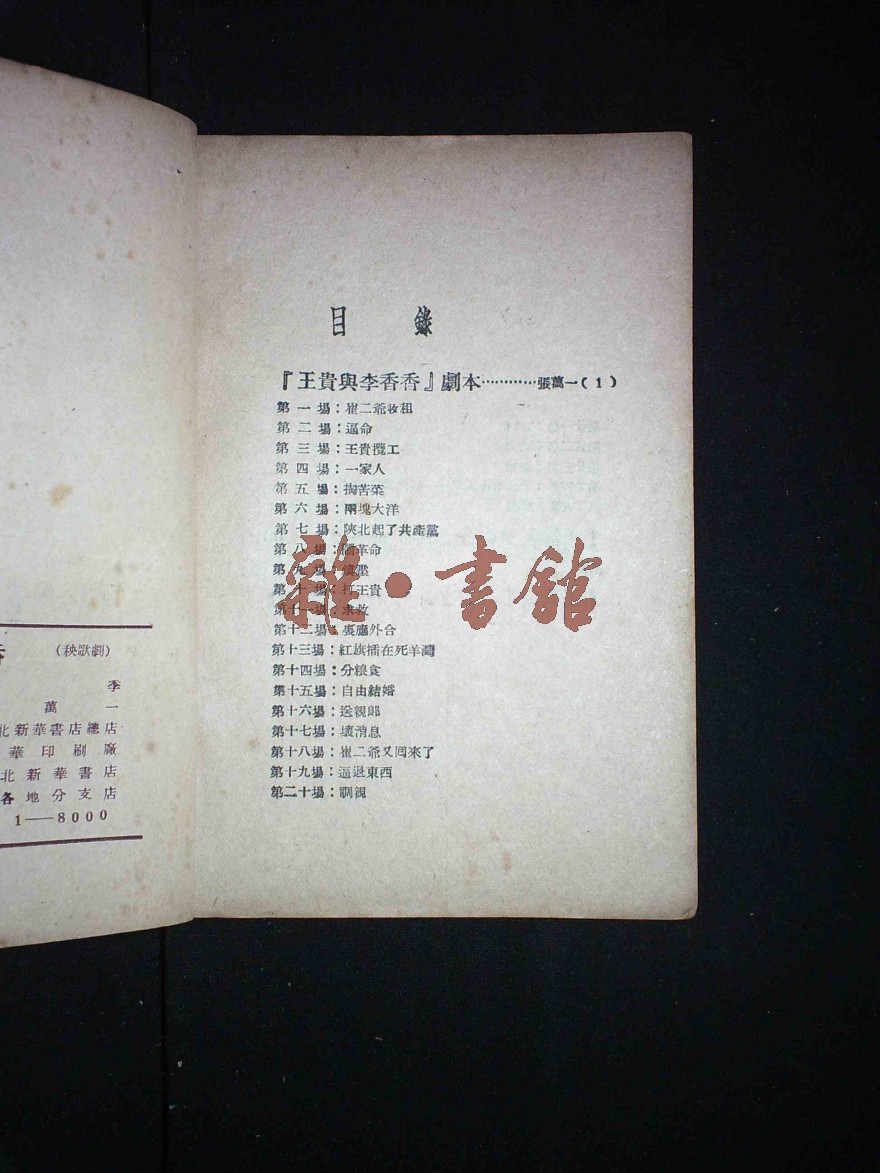 目錄
『王貴與李香香』劇本…………張萬一(1)
第一場：崔二爺收租
第二場：逼命
第三場：王貴攬工
第四場：一家人
第五場：掏苦菜
第六場：兩塊大洋
第七場：陝北起了共產黨
第八場：鬧革命
第九場：
第十場：打王貴
第十一場：求救
第十二場：裏應外合
第十三場：紅旗插在死羊灣
第十四場：分粮食
第十五場：自由結婚
第十六場：送親郎
第十七場：壞消息
第十八場：崔二爺又囘來了
第十九場：逼退東西
第二十場：調親
雜·書館
香 (秧歌劇)
季
萬一
北新華書店總店
華印刷廠
北新華書店
各地分支店
1—8000